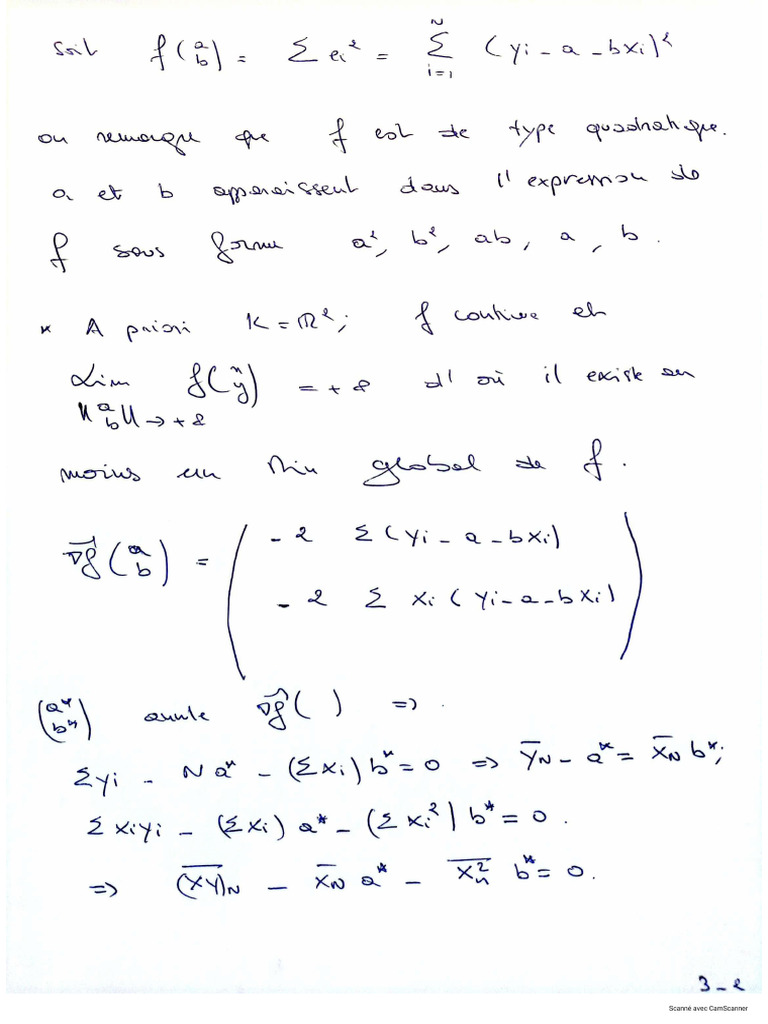 Soit f(a b) = Σ ei² = Σ_{i=1}^{N} (yi - a - bxi)²
on remarque que f est de type quadratique.
a et b apparaissent dans l'expression de
f sous forme a², b², ab, a, b.
* A priori K = ℝ²; f continue et
Lim f(x y) = +∞ d'où il existe au
‖a b‖ → +∞
moins un Min global de f.
∇f(a b) = ( -2 Σ(yi - a - bxi)
-2 Σ xi(yi - a - bxi) )
(a* b*) annule ∇f( ) =>
Σyi - Na* - (Σxi)b* = 0 => Y̅N - a* = X̅N b*;
Σxiyi - (Σxi)a* - (Σxi²)b* = 0.
=> (X̅Y̅)N - X̅N a* - X̅²n b* = 0.
3-2
Scanné avec CamScanner